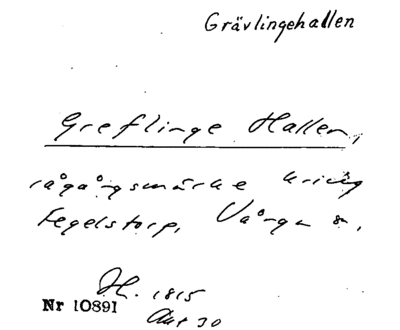 Grävlingehallen
Greflinge Hallen,
rågångsmärke kring
Fegelstorp, Vånga s.,
H. 1815
Akt 30
Nr 10891